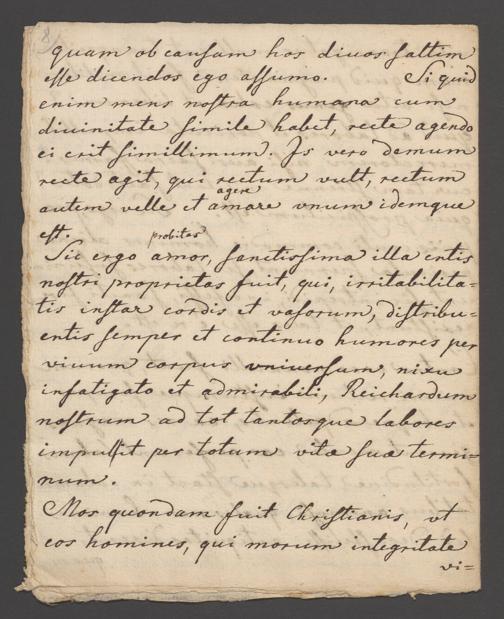 8
quam ob causam hos diuos saltim
esse dicendos ego assumo. Si quid
enim mens nostra humana cum
diuinitate simile habet, recte agendo
ei erit simillimum. Is vero demum
recte agit, qui rectum vult, rectum
agere
autem velle et amare vnum idemque
est.
probitas
Sic ergo amor, sanctissima illa entis
nostri proprietas fuit, qui, irritabilita-
tis instar cordis et vasorum, distribu-
entis semper et continuo humores per
viuum corpus vniuersum, nixu
infatigato et admirabili, Reichardum
nostrum ad tot tantosque labores
impulsit per totum vitæ suæ termi-
num.
Mos quondam fuit Christianis, vt
eos homines, qui morum integritate
vi=